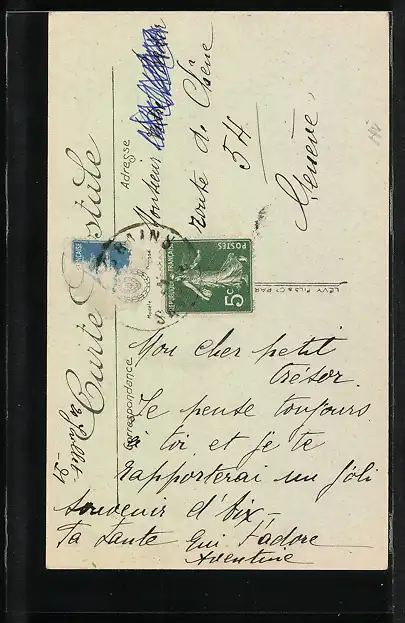 Carte Postale
Correspondance
Adresse
Monsieur
route de Chêne
54
Genève
LÉVY FILS & Cie PAR
POSTES
RÉPUBLIQUE FRANÇAISE
5c
BAINS
Mon cher petit
trésor.
Je pense toujours
à toi et je te
rapporterai un joli
souvenir d'Aix –
Ta tante qui t'adore
21